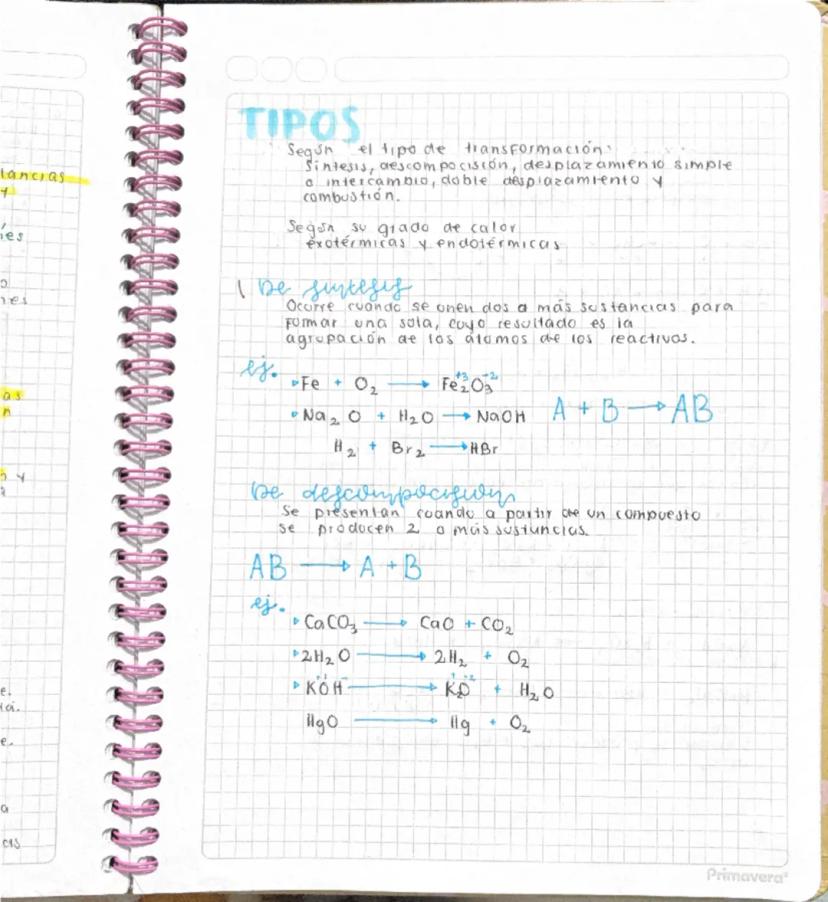 TIPOS
Según el tipo de transformación:
Síntesis, descomposisión, desplazamiento simple
o intercambio, doble desplazamiento y
combustión.
Según su grado de calor
exotérmicas y endotérmicas
1 De sintesis
Ocurre cuando se unen dos o más sustancias para
formar una sola, cuyo resultado es la
agrupación de los átomos de los reactivos.
ej.
Fe + O₂ → Fe₂⁺³O₃⁻²
Na₂O + H₂O → NaOH A + B → AB
H₂ + Br₂ → HBr
De descomposision
Se presentan cuando a partir de un compuesto
se producen 2 o más sustancias.
AB → A + B
ej.
CaCO₃ → CaO + CO₂
2H₂O → 2H₂ + O₂
KOH → K₂O + H₂O
HgO → Hg + O₂
Primavera
lancias
y
ies
o
nes
as
n
o y
e.
ia.
e.
a
cas